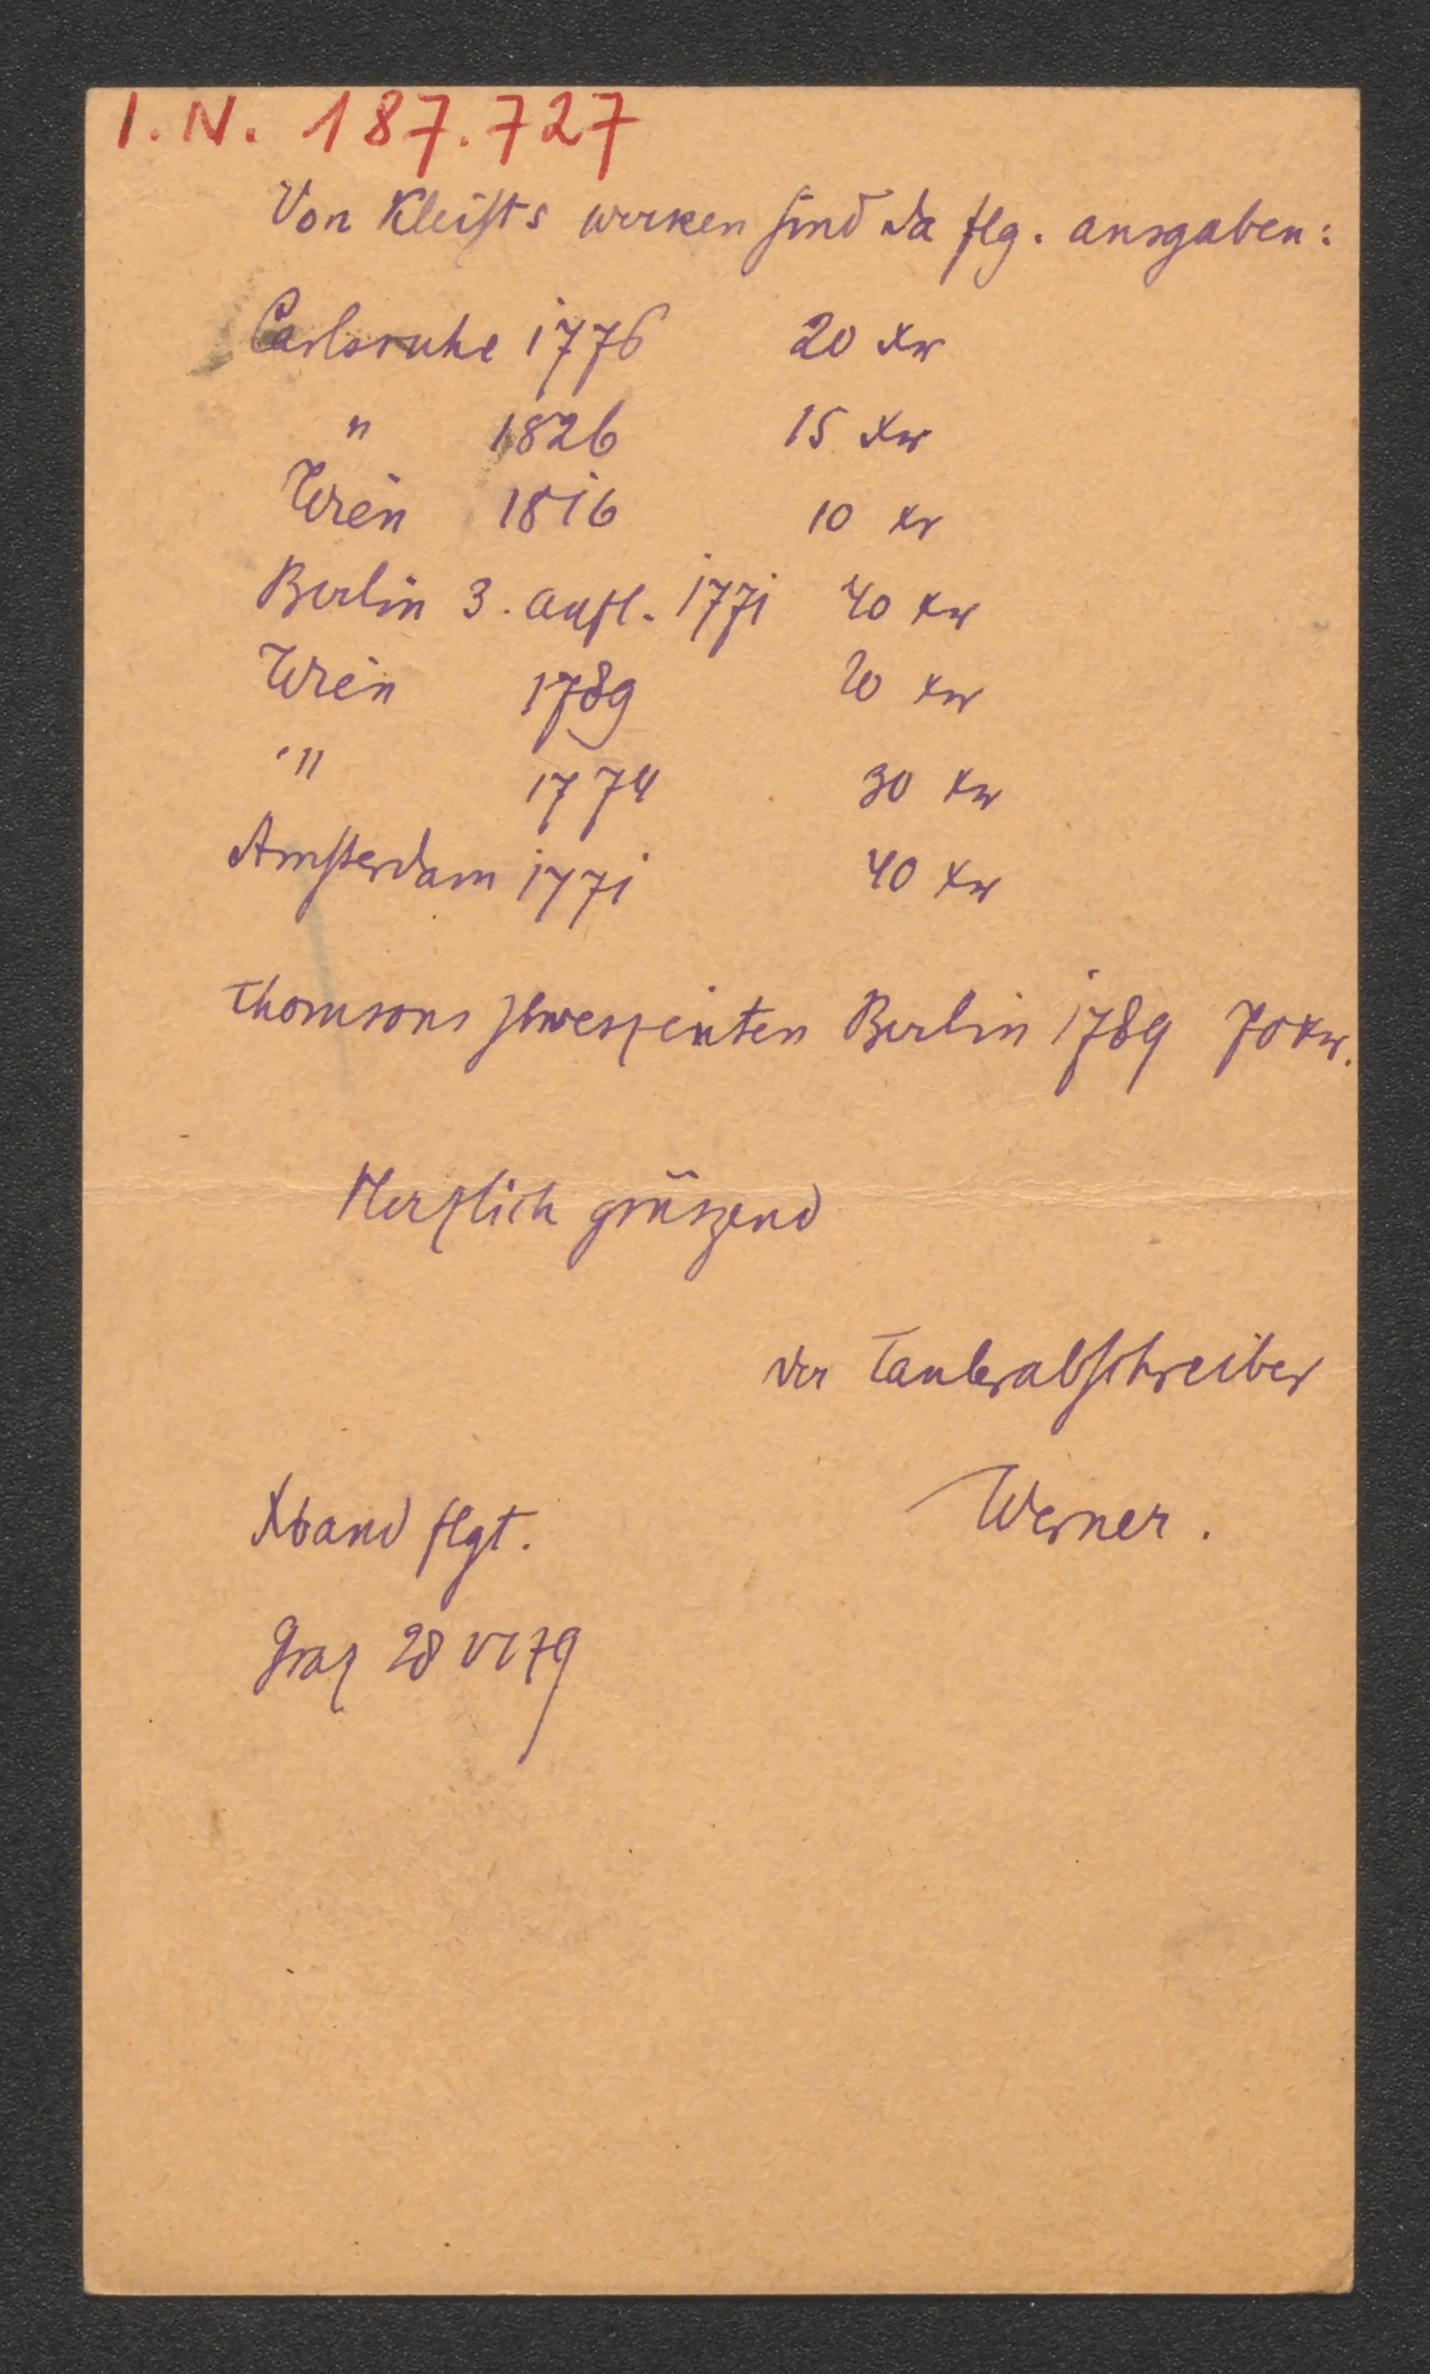 I. N. 187.727
Von Kleists werken sind da flg. ausgaben:
Carlsruhe 1776 20 xr
" 1826 15 xr
Wien 1816 10 xr
Berlin 3. aufl. 1771 40 xr
Wien 1789 20 xr
" 1774 30 xr
Amsterdam 1771 40 xr
Thomsons jhreszeiten Berlin 1789 70 xr.
Herzlich grüszend
der Taulerabschreiber
Werner.
Xband flgt.
Graz 28 VI 79